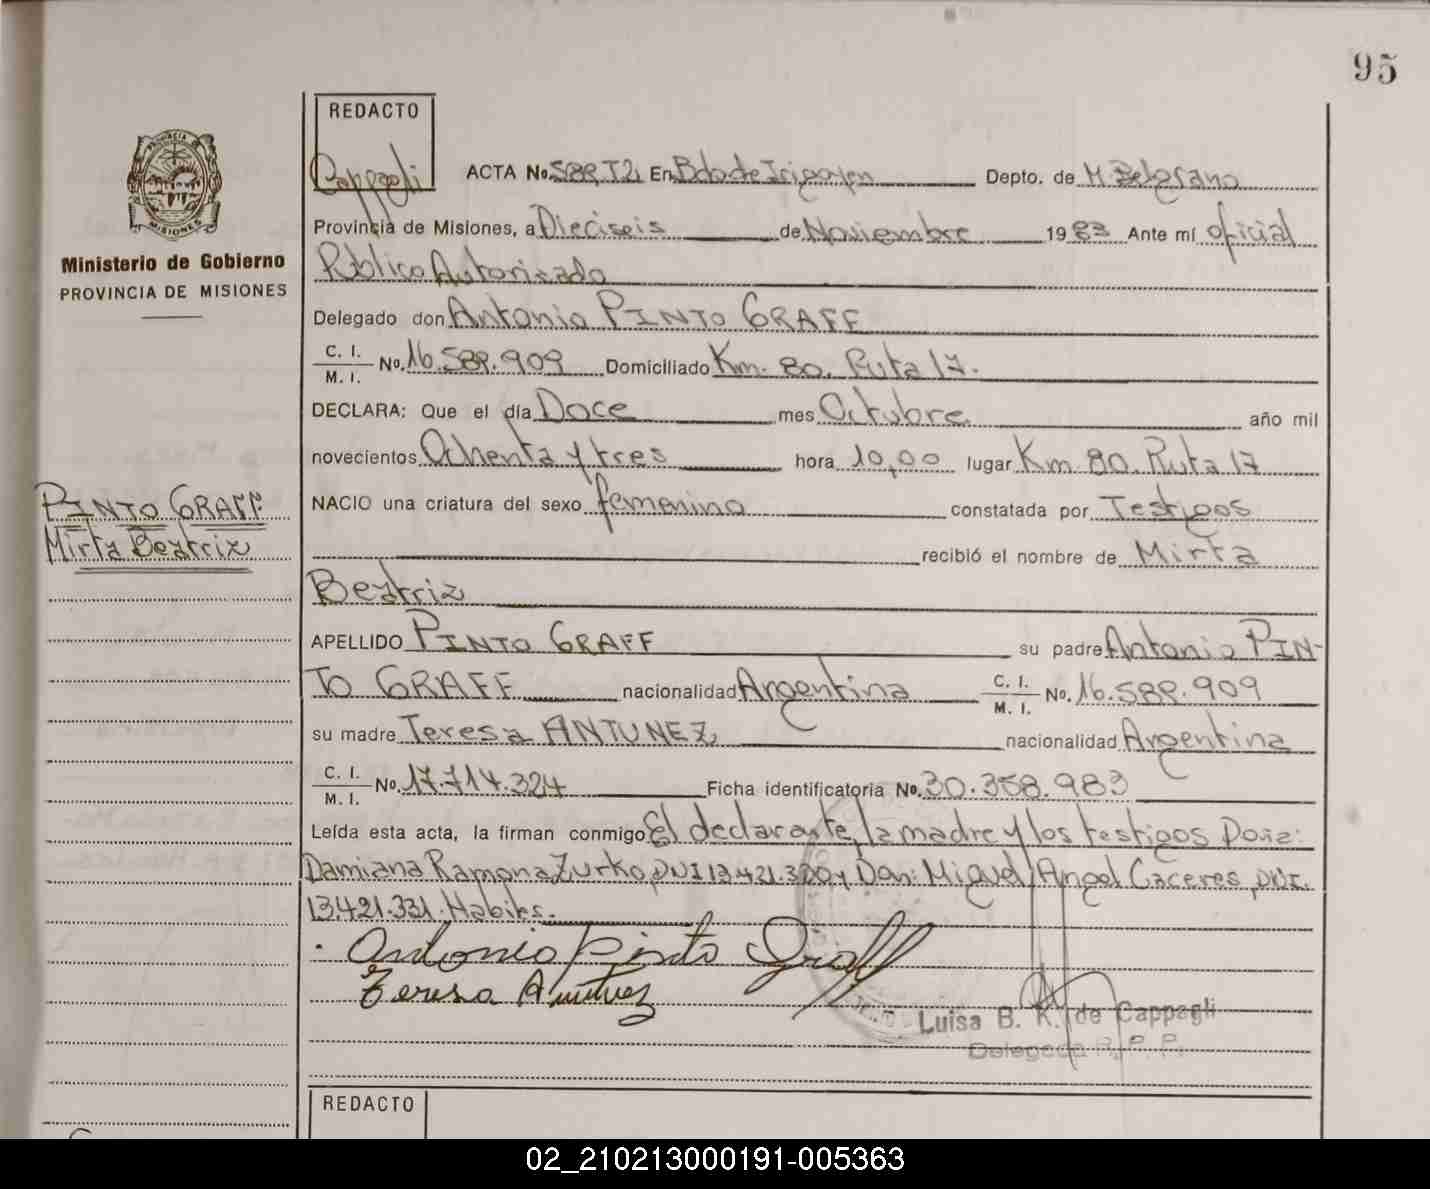 95
REDACTO
Cappagli
ACTA No. 588, T2, En Bdo de Irigoyen Depto. de M. Belgrano
Provincia de Misiones, a Dieciseis de Noviembre 1983 Ante mí oficial
Público Autorizado
Ministerio de Gobierno
PROVINCIA DE MISIONES
Delegado don Antonio PINTO GRAFF
C. I.
M. I. No. 16.588.909 Domiciliado Km. 80. Ruta 17.
DECLARA: Que el día Doce mes Octubre año mil
novecientos Ochenta y tres hora 10,00 lugar Km 80. Ruta 17
NACIO una criatura del sexo femenino constatada por Testigos
PINTO GRAFF
Mirta Beatriz
recibió el nombre de Mirta
Beatriz
APELLIDO PINTO GRAFF su padre Antonio PIN-
TO GRAFF nacionalidad Argentina C. I. M. I. No. 16.588.909
su madre Teresa ANTUNEZ, nacionalidad Argentina
C. I.
M. I. No. 17.714.324 Ficha identificatoria No. 30.358.983
Leída esta acta, la firman conmigo El declarante, la madre y los testigos Doña:
Damiana Ramona Zurko, DNI 13.421.320 y Don: Miguel Angel Caceres, DNI.
13.421.331. Habiles.
Antonio Pinto Graff
Teresa Antunez
Luisa B. K. de Cappagli
Delegada R. P. P.
REDACTO
02_210213000191-005363